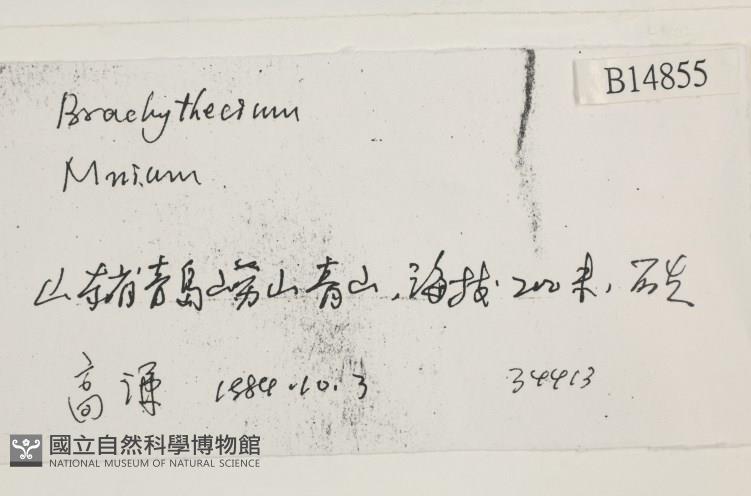 B14855
Brachythecium
Mnium
山东省青岛崂山青山,海拔200米,
高谦 1984.10.3 34413
國立自然科學博物館
NATIONAL MUSEUM OF NATURAL SCIENCE